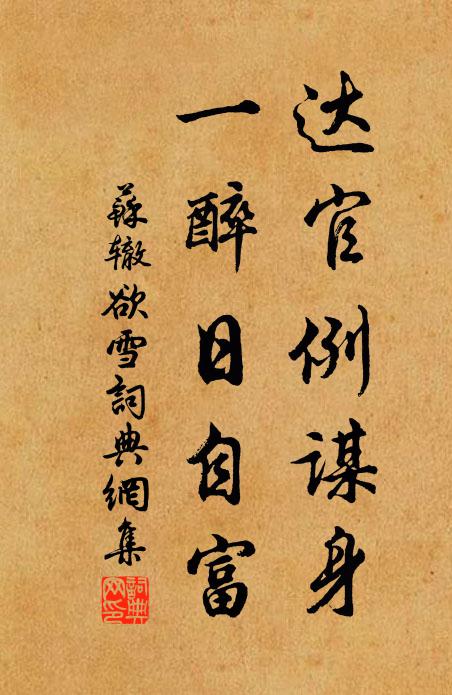 达官例谋身
一醉日自富
蘇辙欲雪詞典網集
詞典网印